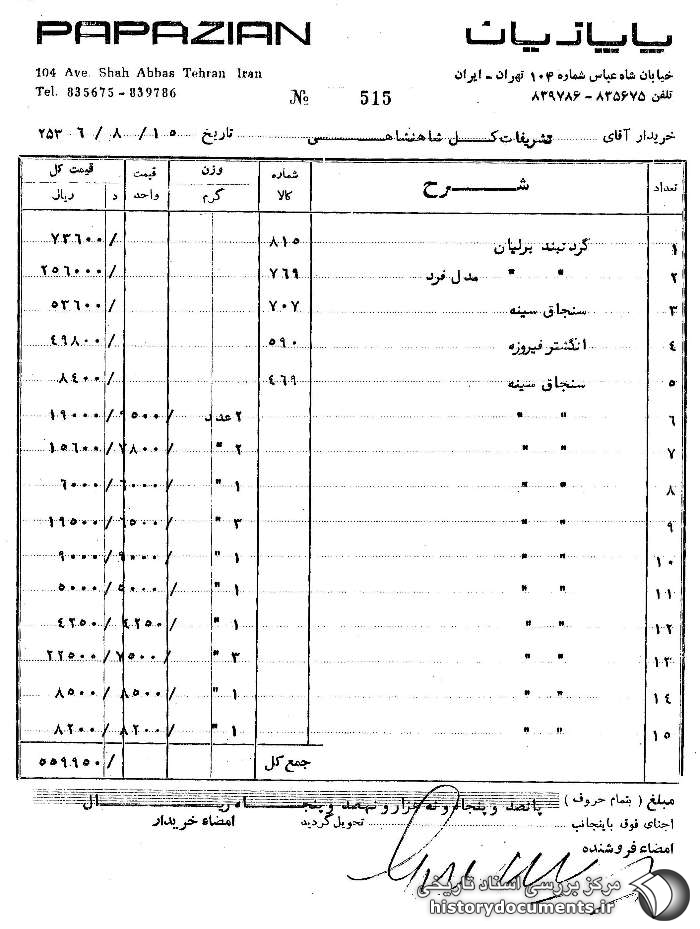 PAPAZIAN پاپازیان
104 Ave. Shah Abbas Tehran Iran خیابان شاه عباس شماره ۱۰۴ تهران - ایران
Tel. 835675 - 839786 № 515 تلفن ۸۳۵۶۷۵ - ۸۳۹۷۸۶
خریدار آقای تشریفات کل شاهنشاهی تاریخ ۱۵ / ۸ / ۲۵۳۶
تعداد شرح شماره کالا وزن گرم قیمت واحد د قیمت کل ریال
۱ گردنبند برلیان ۸۱۵ /۷۳۶۰۰
۲ " " مدل فرد ۷۶۹ /۲۵۶۰۰۰
۳ سنجاق سینه ۷۰۷ /۵۳۶۰۰
۴ انگشتر فیروزه ۵۹۰ /۴۹۸۰۰
۵ سنجاق سینه ۴۶۹ /۸۴۰۰
۶ " " ۲ عدد /۹۵۰۰ /۱۹۰۰۰
۷ " " ۲ " /۷۸۰۰ /۱۵۶۰۰
۸ " " ۱ " /۶۰۰۰ /۶۰۰۰
۹ " " ۳ " /۶۵۰۰ /۱۹۵۰۰
۱۰ " " ۱ " /۹۰۰۰ /۹۰۰۰
۱۱ " " ۱ " /۵۰۰۰ /۵۰۰۰
۱۲ " " ۱ " /۴۲۵۰ /۴۲۵۰
۱۳ " " ۳ " /۷۵۰۰ /۲۲۵۰۰
۱۴ " " ۱ " /۸۵۰۰ /۸۵۰۰
۱۵ " " ۱ " /۸۲۰۰ /۸۲۰۰
جمع کل /۵۵۹۹۵۰
مبلغ ( بتمام حروف ) پانصد و پنجاه و نه هزار و نهصد و پنجاه ریال
اجنای فوق باینجانب تحویل گردید
امضاء فروشنده امضاء خریدار
مرکز بررسی اسناد تاریخی
historydocuments.ir